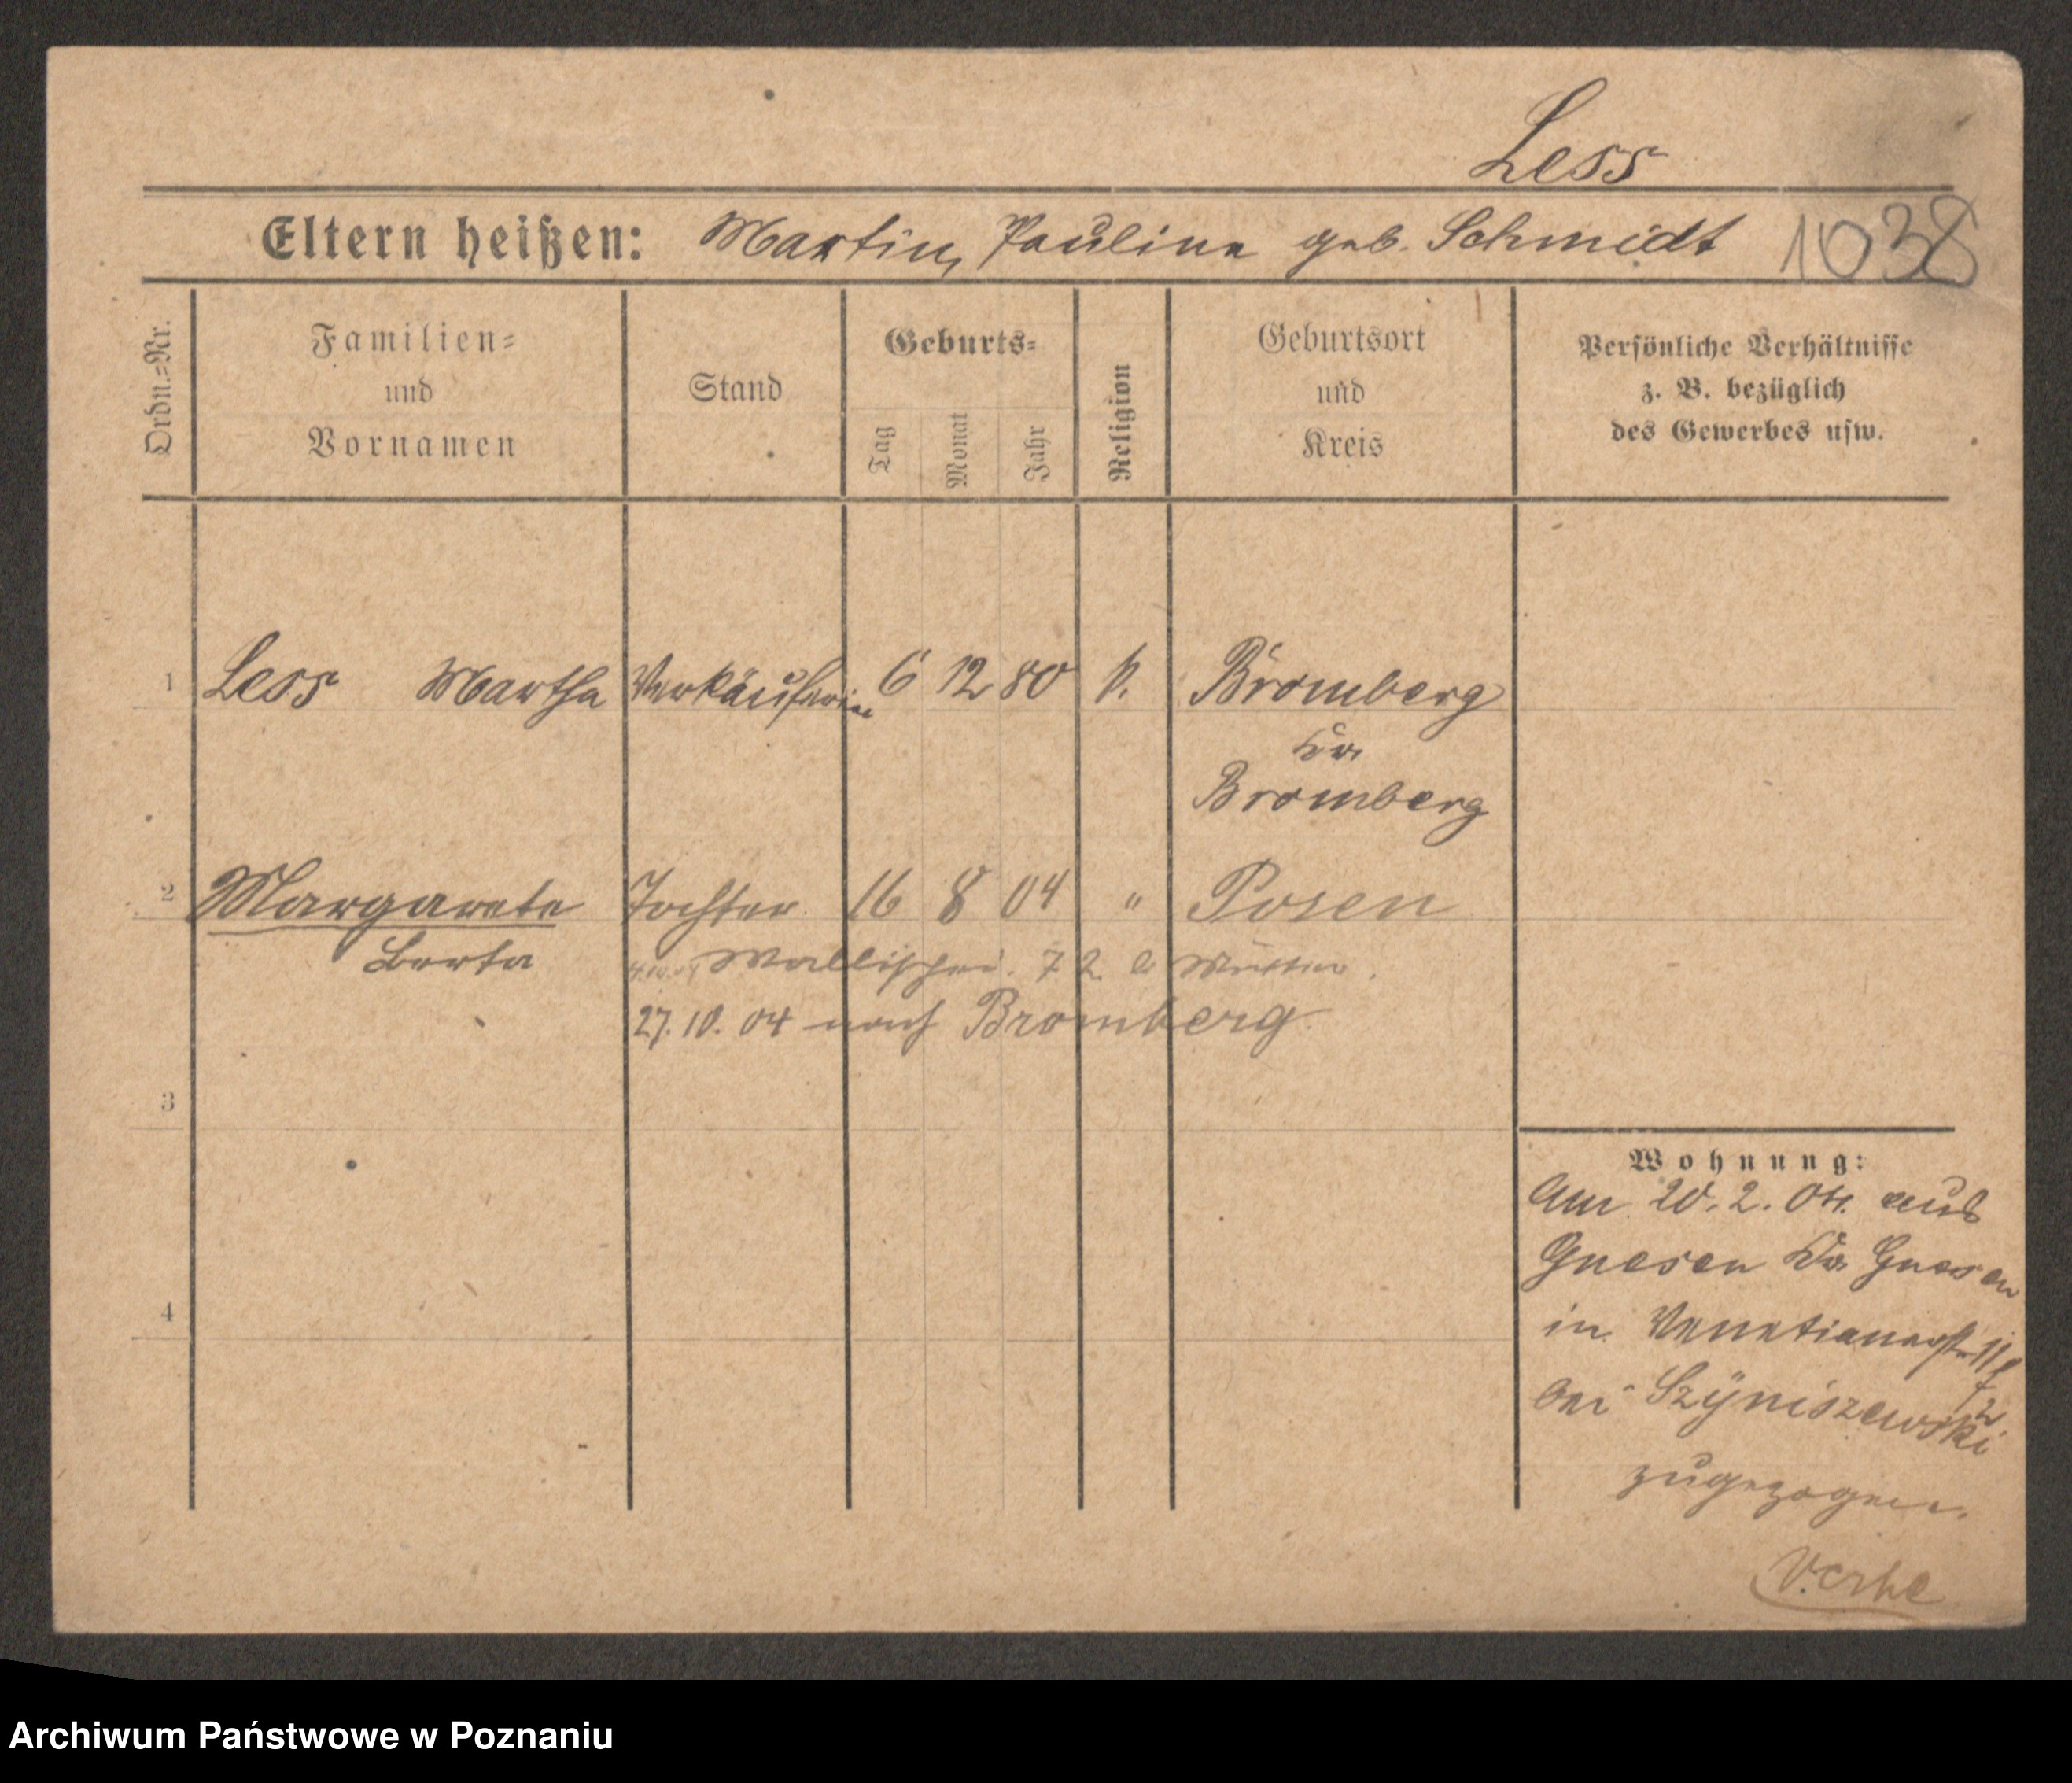 Less
Eltern heißen: Martin, Pauline geb. Schmidt 1038
Ordn.=Nr.
Familien=
und
Vornamen
Stand
Geburts=
Tag
Monat
Jahr
Religion
Geburtsort
und
Kreis
Persönliche Verhältnisse
z. B. bezüglich
des Gewerbes usw.
1 Less Martha Verkäuferin 6 12 80 k. Bromberg
Kr.
Bromberg
2 Margarete Tochter 16 8 04 " Posen
Berta
Wallischei 72 b Mutter.
27. 10. 04 nach Bromberg
3
4
Wohnung:
Am 20. 2. 04. aus
Gnesen Kr. Gnesen
in Venetianerstr
bei Szÿniszewski
zugezogen.
Archiwum Państwowe w Poznaniu